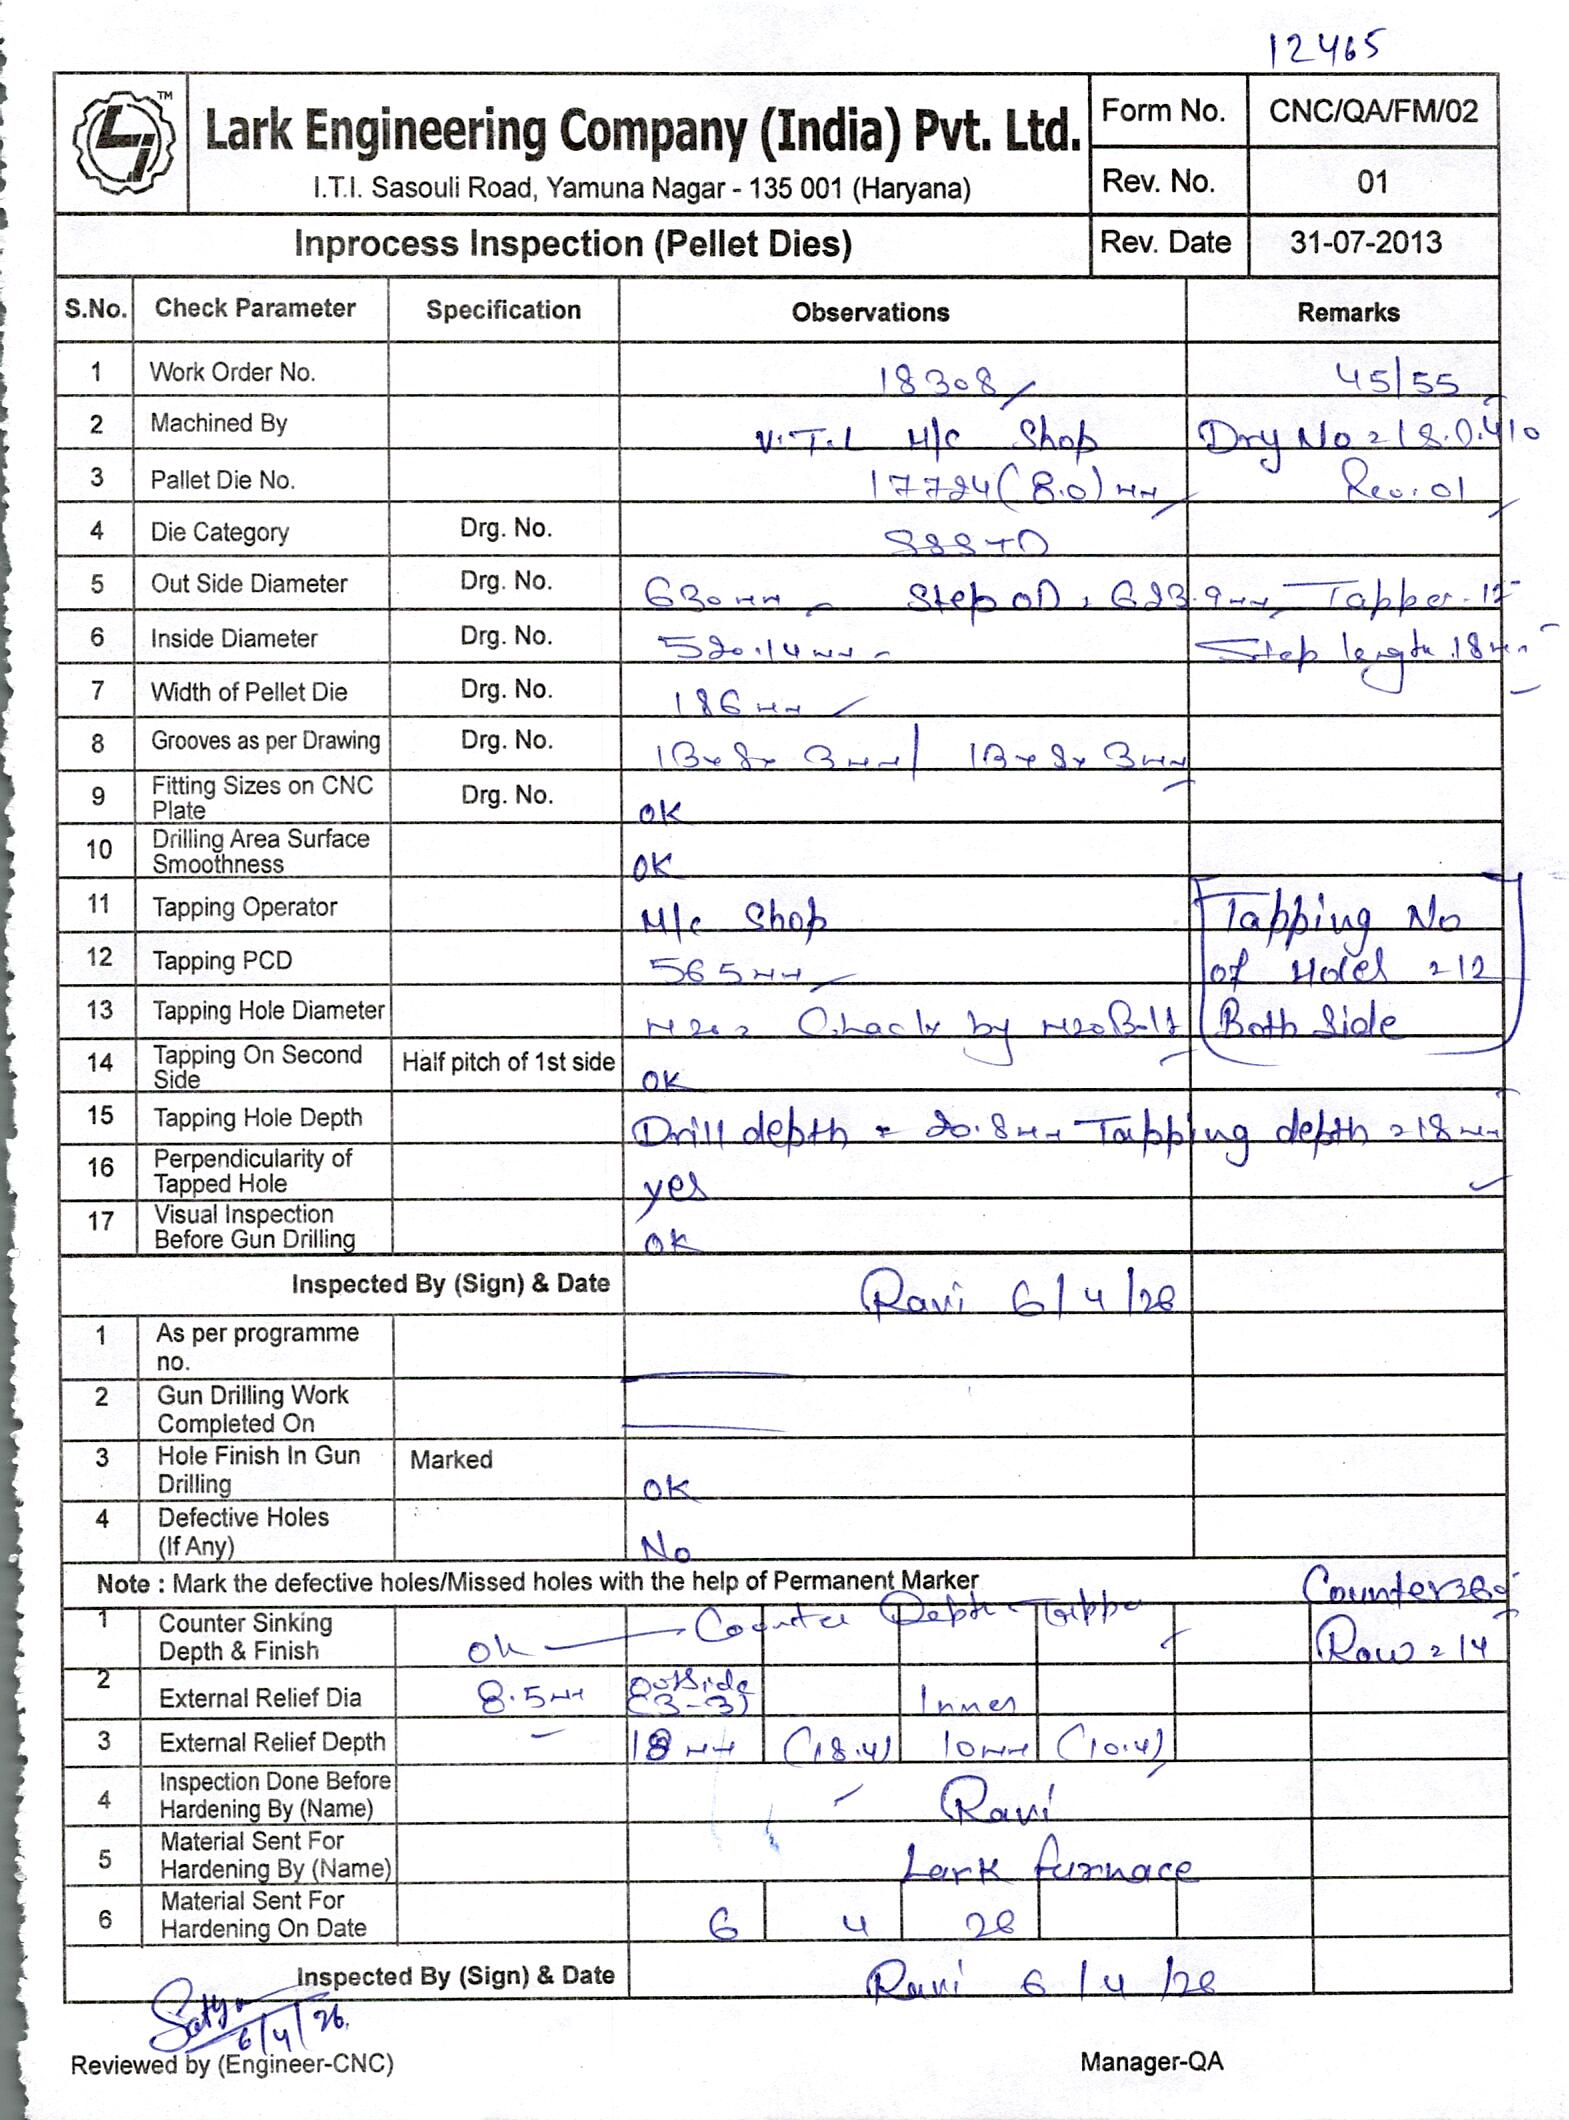 12465
TM
Lark Engineering Company (India) Pvt. Ltd.
I.T.I. Sasouli Road, Yamuna Nagar - 135 001 (Haryana)
Form No. CNC/QA/FM/02
Rev. No. 01
Inprocess Inspection (Pellet Dies)
Rev. Date 31-07-2013
S.No. Check Parameter Specification Observations Remarks
1 Work Order No. 18308 45/55
2 Machined By V.T.L M/c Shop Drg No =
3 Pallet Die No. 17724(8.0)mm Rev. 01
4 Die Category Drg. No.
5 Out Side Diameter Drg. No. 630mm Step OD, 623.9mm Tapper-12
6 Inside Diameter Drg. No. 520.14mm Step length 18mm
7 Width of Pellet Die Drg. No. 186mm
8 Grooves as per Drawing Drg. No. 13x8x3mm/ 13x8x3mm
9 Fitting Sizes on CNC Plate Drg. No. OK
10 Drilling Area Surface Smoothness OK
11 Tapping Operator M/c Shop Tapping No
12 Tapping PCD 565mm of Holes = 12
13 Tapping Hole Diameter M20 = Check by M20 Bolt Both Side
14 Tapping On Second Side Half pitch of 1st side OK
15 Tapping Hole Depth Drill depth = 20.8mm Tapping depth = 18mm
16 Perpendicularity of Tapped Hole yes
17 Visual Inspection Before Gun Drilling OK
Inspected By (Sign) & Date Ravi 6/4/26
1 As per programme no.
2 Gun Drilling Work Completed On
3 Hole Finish In Gun Drilling Marked OK
4 Defective Holes (If Any) No
Note : Mark the defective holes/Missed holes with the help of Permanent Marker
1 Counter Sinking Depth & Finish ok Counter Depth Tapper Row = 14
2 External Relief Dia 8.5mm Outside (3-3) Inner
3 External Relief Depth - 18mm (18.4) 10mm (10.4)
4 Inspection Done Before Hardening By (Name) Ravi
5 Material Sent For Hardening By (Name) Lark furnace
6 Material Sent For Hardening On Date 6 4 26
Inspected By (Sign) & Date Ravi 6/4/26
Satya
6/4/26.
Reviewed by (Engineer-CNC) Manager-QA